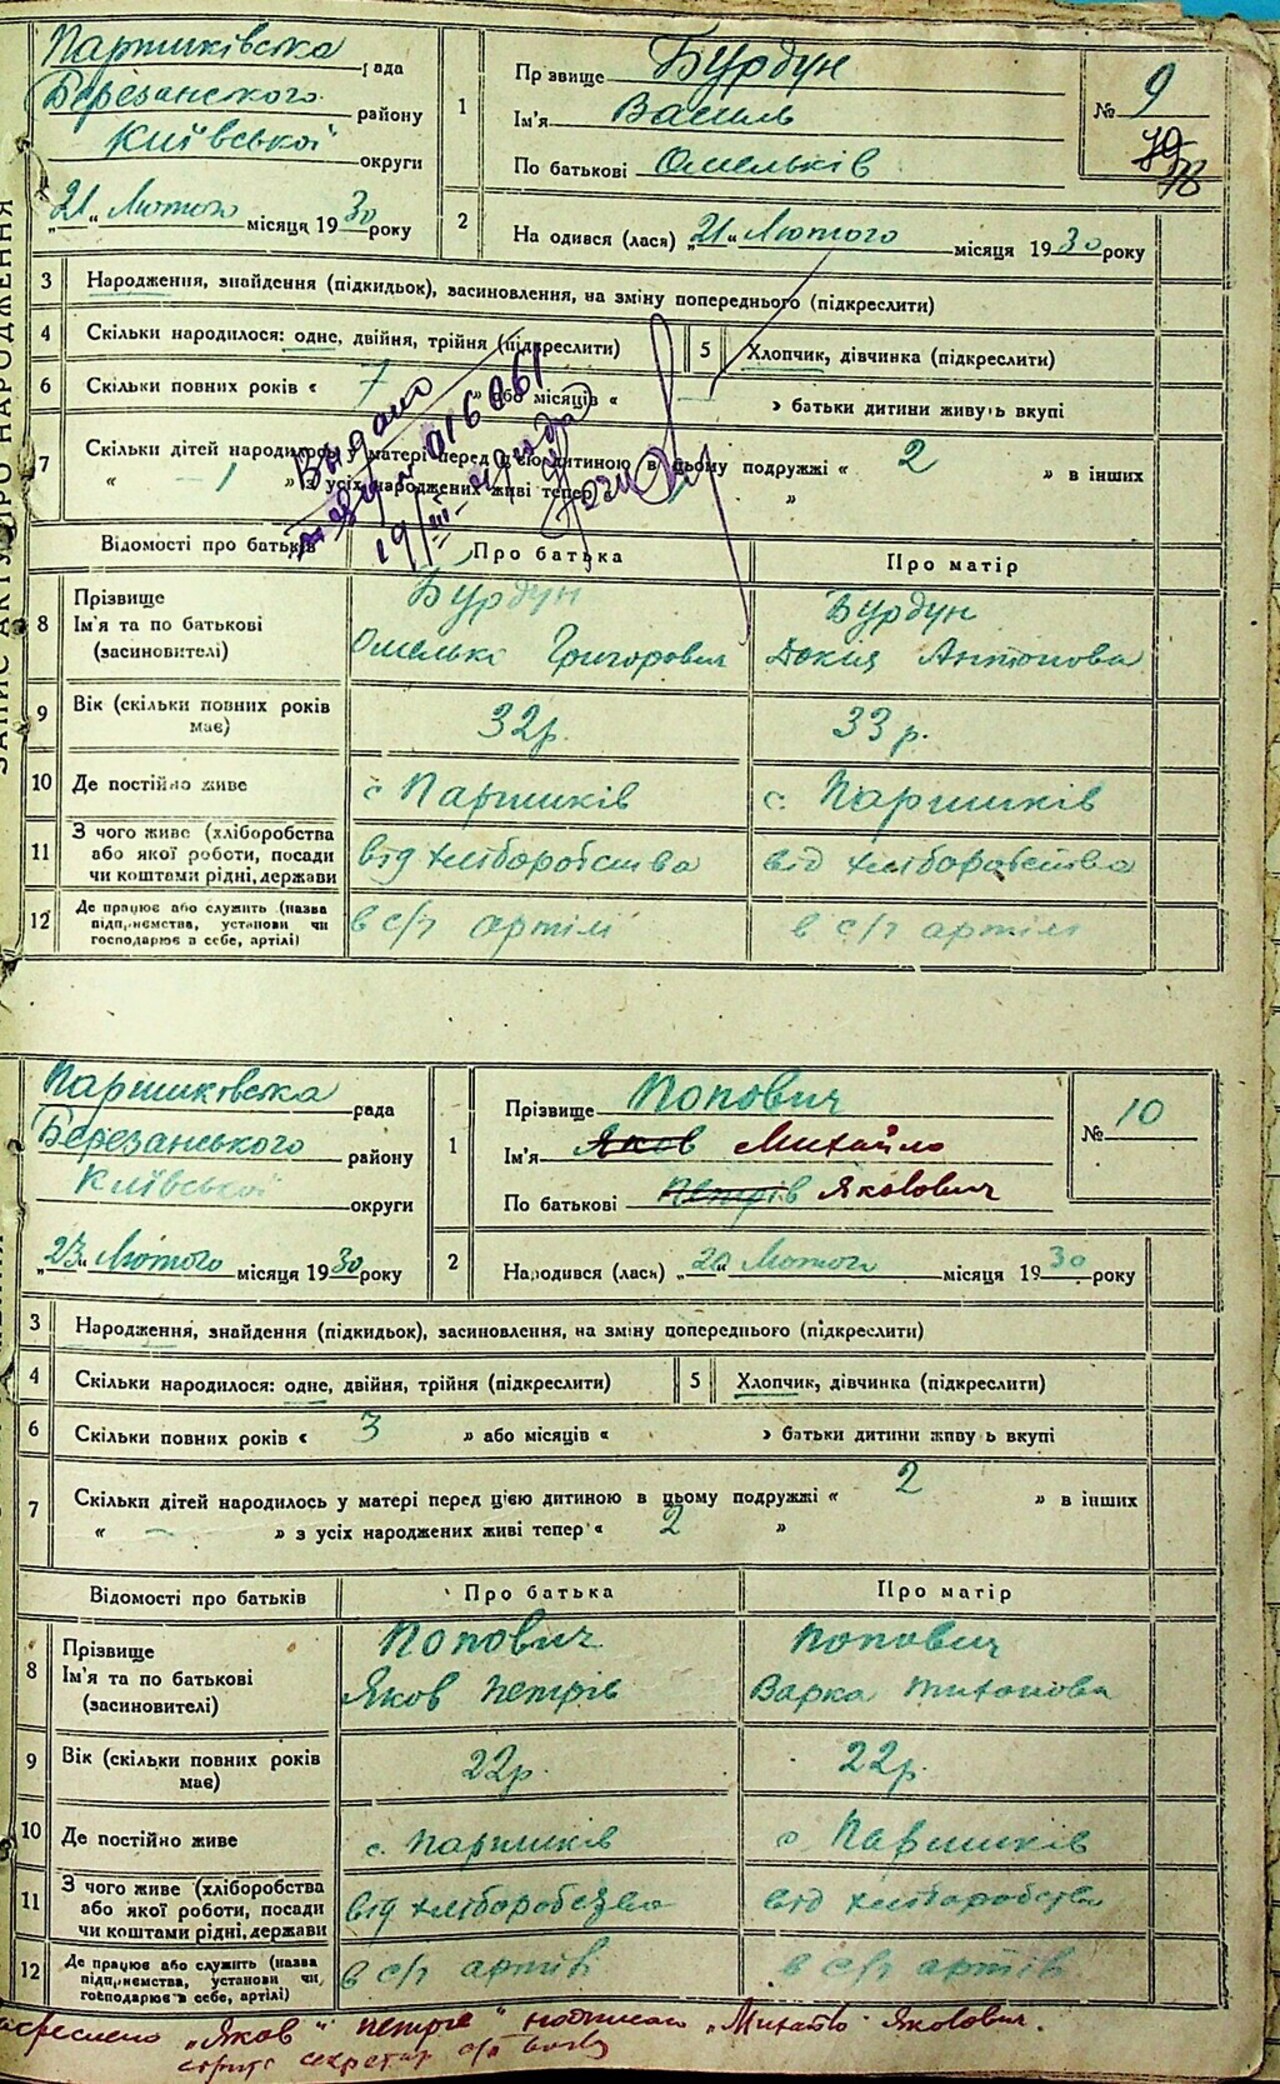 ЗАПИС АКТУ ПРО НАРОДЖЕННЯ
Паришківська рада
Березанського району
Київської округи
„21" Лютого місяця 1930 року
1
Прізвище Бурдун
Ім'я Василь
По батькові Омельків
№ 9
79
78
2 На одився (лася) „21" Лютого місяця 1930 року
3 Народження, знайдення (підкидьок), засиновлення, на зміну попереднього (підкреслити)
4 Скільки народилося: одне, двійня, трійня (підкреслити) 5 Хлопчик, дівчинка (підкреслити)
6 Скільки повних років « 7 » або місяців « — » батьки дитини живуть вкупі
7 Скільки дітей народилось у матері перед цією дитиною в цьому подружжі « 2 » в інших
« — 1 » з усіх народжених живі тепер »
Выдано
016061
19/III
Відомості про батьків Про батька Про матір
8 Прізвище Бурдун Бурдун
Ім'я та по батькові Омелькі Григорович Докия Антонова
(засиновителі)
9 Вік (скільки повних років має) 32р. 33 р.
10 Де постійно живе с Паришків с. Паришків
11 З чого живе (хліборобства
або якої роботи, посади від хліборобства від хліборобства
чи коштами рідні, держави
12 Де працює або служить (назва
підприємства, установи чи в с/г артілі в с/г артілі
господарює в себе, артілі)
Паришківська рада
Березанського району
Київської округи
„23" Лютого місяця 1930 року
1
Прізвище Попович
Ім'я Яков Михайло
По батькові Петрів Яковович
№ 10
2 Народився (лася) „20" Лютого місяця 1930 року
3 Народження, знайдення (підкидьок), засиновлення, на зміну попереднього (підкреслити)
4 Скільки народилося: одне, двійня, трійня (підкреслити) 5 Хлопчик, дівчинка (підкреслити)
6 Скільки повних років « 3 » або місяців « » батьки дитини живу ь вкупі
7 Скільки дітей народилось у матері перед цією дитиною в цьому подружжі « 2 » в інших
« — » з усіх народжених живі тепер « 2 »
Відомості про батьків Про батька Про матір
8 Прізвище Попович Попович
Ім'я та по батькові Яков Петрів Варка Тихонова
(засиновителі)
9 Вік (скільки повних років має) 22р. 22р.
10 Де постійно живе с. Паришків с Паришків
11 З чого живе (хліборобства
або якої роботи, посади від хліборобства від хліборобства
чи коштами рідні, держави
12 Де працює або служить (назва
підприємства, установи чи, в с/г артілі в с/г артілі
господарює в себе, артілі)
„Яков" „Петрів" надписано „Михайло Яковович.
секретар с/р